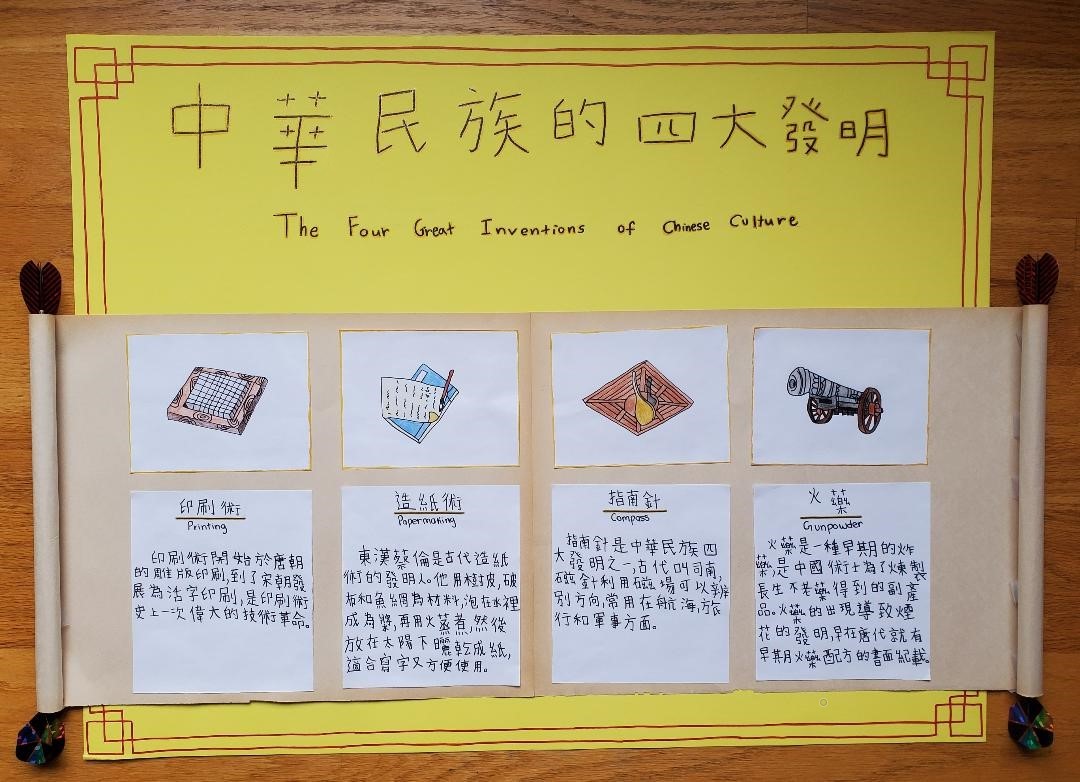 中華民族的四大發明
The Four Great Inventions of Chinese Culture
印刷術
Printing
印刷術開始於唐朝
的雕版印刷,到了宋朝發
展為活字印刷,是印刷術
史上一次偉大的技術革命。
造紙術
Papermaking
東漢蔡倫是古代造紙
術的發明人。他用樹皮,破
布和魚網為材料,泡在水裡
成為漿,再用火蒸煮,然後
放在太陽下曬乾成紙,
適合寫字又方便使用。
指南針
Compass
指南針是中華民族四
大發明之一,古代叫司南,
磁針利用磁場可以辨
別方向,常用在航海,旅
行和軍事方面。
火藥
Gunpowder
火藥是一種早期的炸
藥,是中國術士為了煉製
長生不老藥得到的副產
品。火藥的出現導致煙
花的發明,早在唐代就有
早期火藥配方的書面記載。